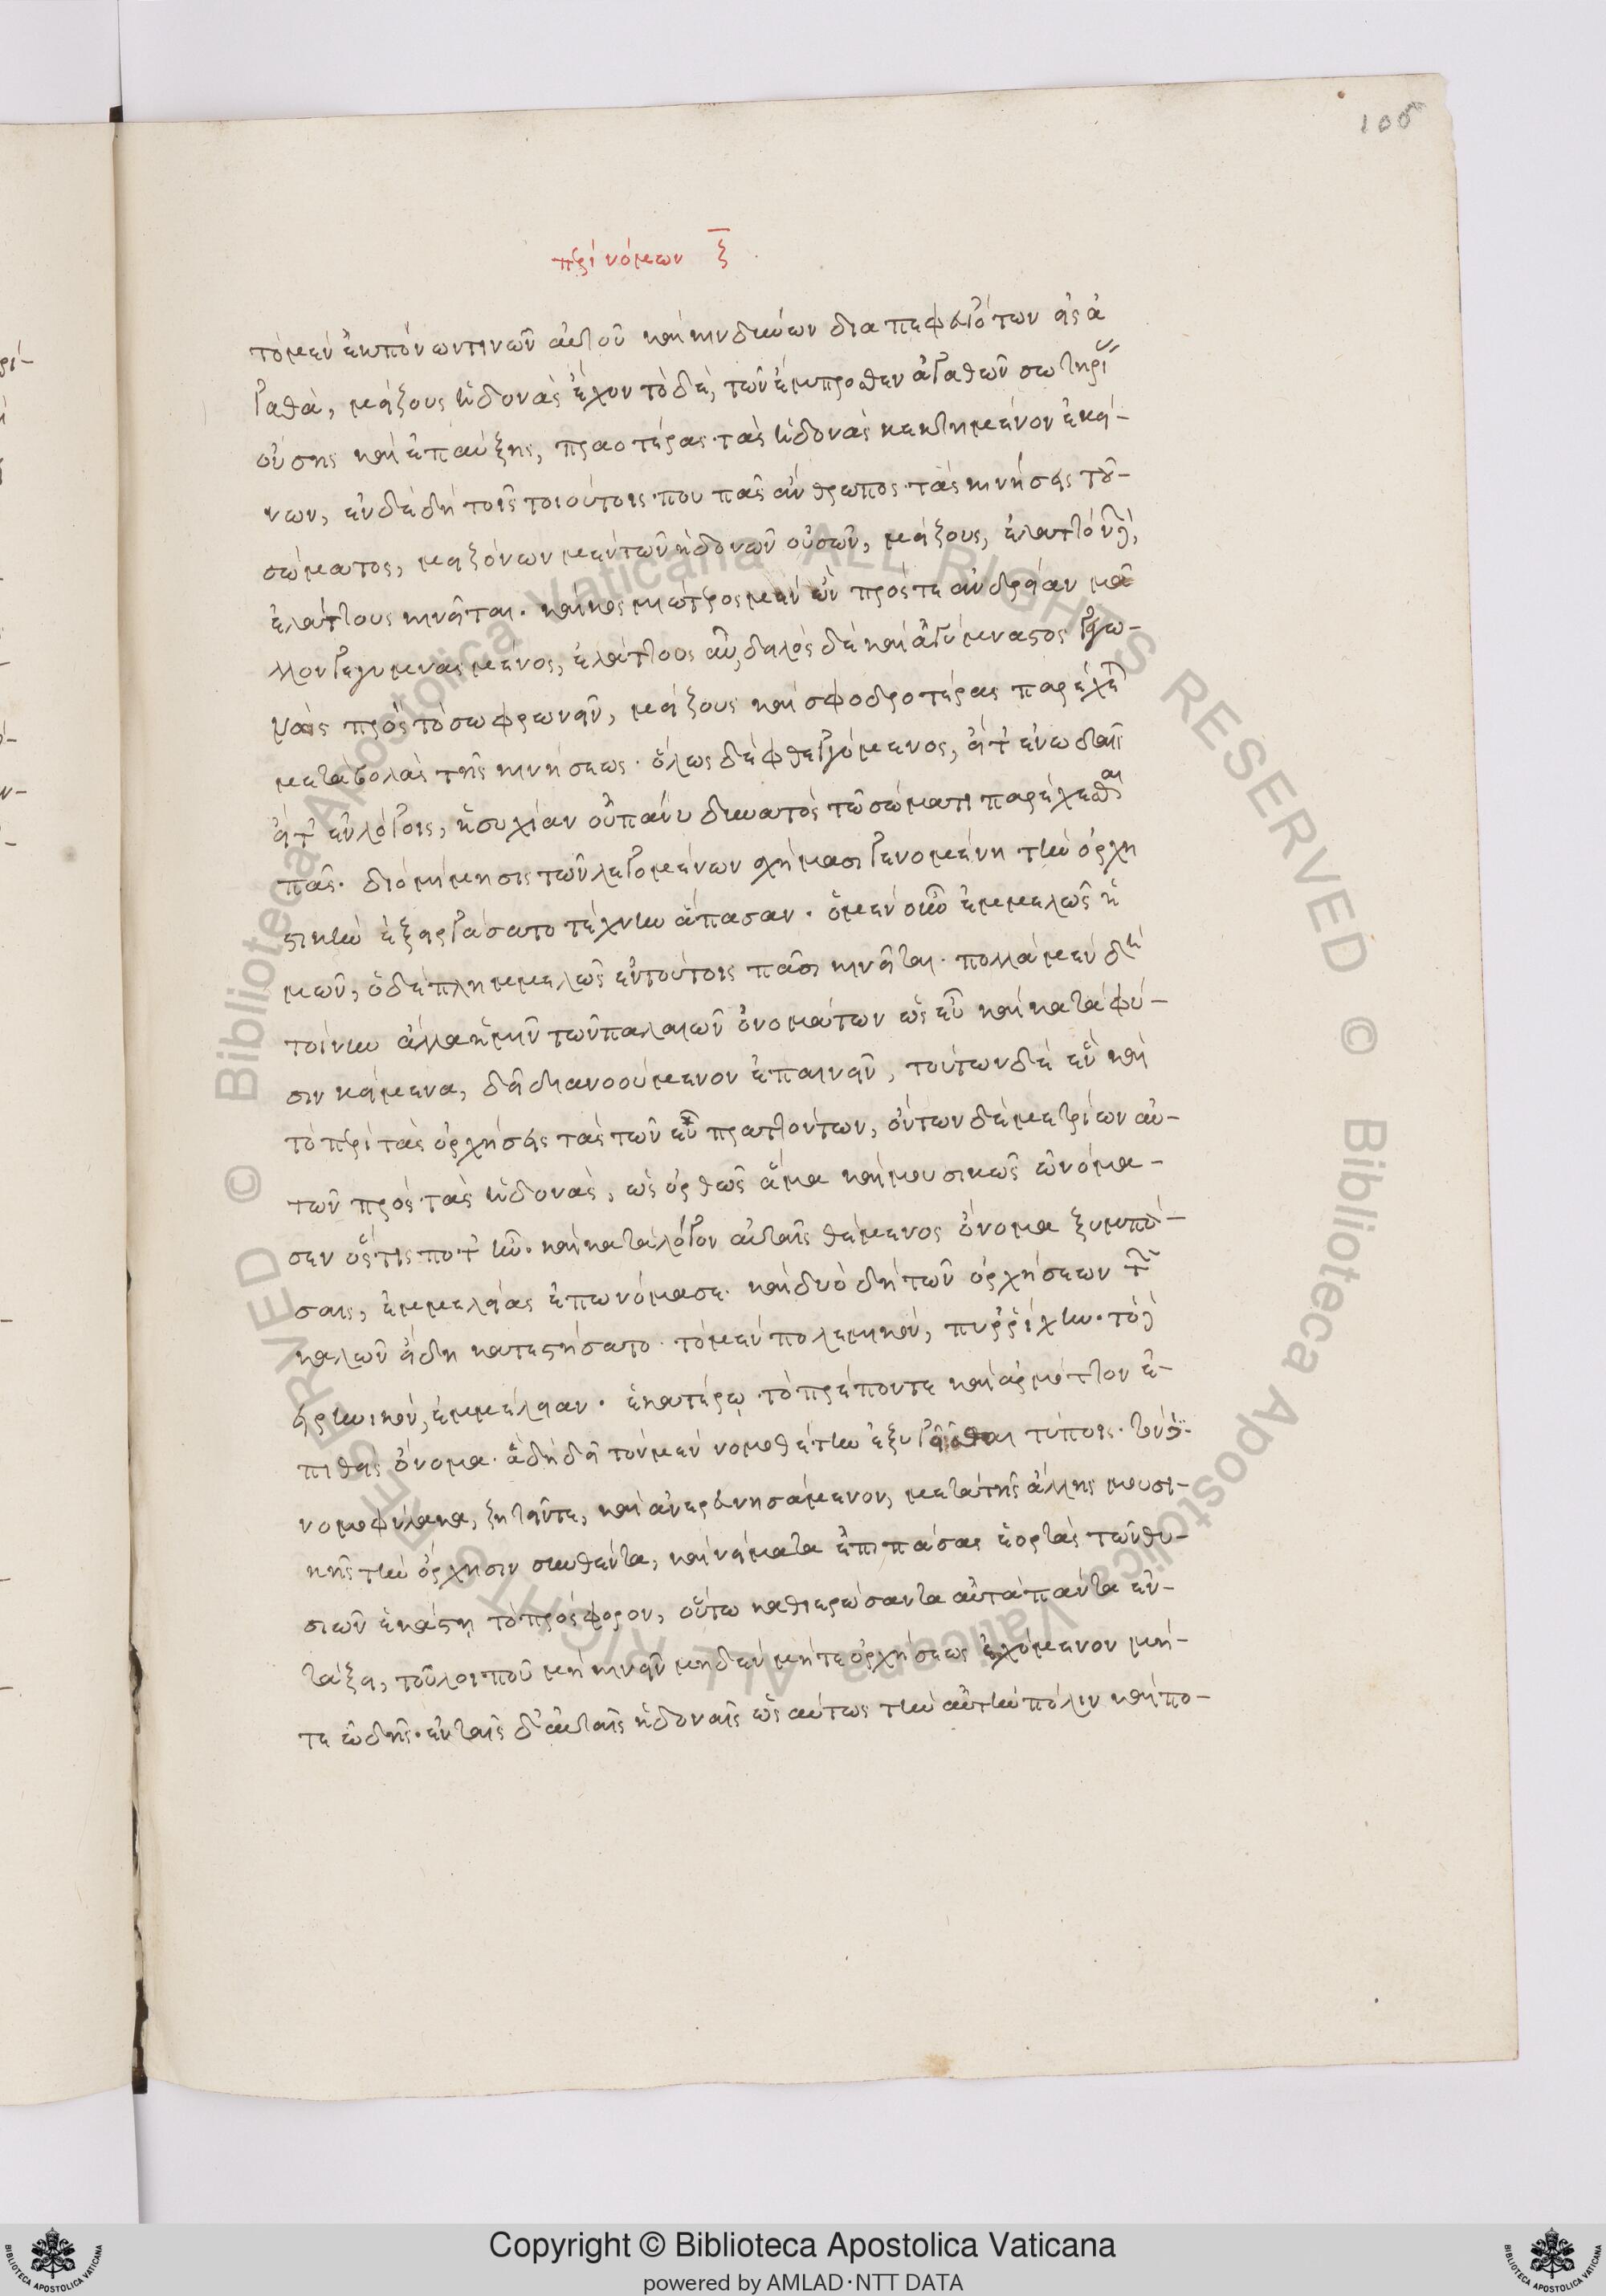 105
περὶ νόμων ξ̄.
τὸ μὲν ἐκ πόνων τινῶν αὐτοῦ καὶ κινδύνων διαπεφευγότων εἰς ἀ
γαθὰ, μείζους ἡδονὰς ἔχον τὸ δὲ, τῶν ἔμπροσθεν ἀγαθῶν σωτηρί
ούσης καὶ ἐπαύξης, πραοτέρας τὰς ἡδονὰς κεκτημένον ἐκεί-
νων, ἐν δὲ δὴ τοῖς τοιούτοις που πᾶς ἄνθρωπος τὰς κινήσεις τοῦ-
σώματος, μειζόνων μὲν τῶν ἡδονῶν οὐσῶν, μείζους, ἐλαττόνων δὲ,
ἐλάττους κινεῖται. καὶ κοσμιώτερος μὲν ὢν πρός τε ἀνδρείαν μᾶ
λλον γεγυμνασμένος, ἐλάττους αὖ, δειλὸς δὲ καὶ ἀγύμναστος γεγω-
νὼς πρὸς τὸ σωφρωνεῖν, μείζους καὶ σφοδροτέρας παρέχεται
μεταβολὰς τῆς κινήσεως. ὅλως δὲ φθεγγόμενος, εἴτ' ἐν ὠδαῖς
εἴτ' ἐν λόγοις, ἡσυχίαν οὐ πάνυ δυνατὸς τῶ σώματι παρέχεσθαι
πᾶς. διὸ μίμησις τῶν λεγομένων σχήμασι γενομένη τὴν ὀρχη
στικὴν ἐξειργάσατο τέχνην ἅπασαν. ὁ μὲν οὖν ἐμμελῶς ἡ
μῶν, ὁ δὲ πλημμελῶς ἐν τούτοις πᾶσι κινεῖται. πολλὰ μὲν δὴ
τοίνυν ἄλλα ἡμῖν τῶν παλαιῶν ὀνομάτων ὡς εὖ καὶ κατὰ φύ-
σιν κείμενα, δεῖ διανοούμενον ἐπαινεῖν, τούτων δὲ ἓν καὶ
τὸ περὶ τὰς ὀρχήσεις τὰς τῶν εὖ πραττόντων, ὄντων δὲ μετρίων αὐ-
τῶν πρὸς τὰς ἡδονὰς, ὡς ὀρθῶς ἅμα καὶ μουσικῶς ὠνόμα-
σεν ὅστις ποτ' ἦν. καὶ κατὰ λόγον αὐταῖς θέμενος ὄνομα ξυμπά-
σαις, ἐμμελείας ἐπωνόμασε. καὶ δύο δὴ τῶν ὀρχήσεων τῶν
καλῶν εἴδη κατεστήσατο. τὸ μὲν πολεμικὸν, πυρρίχην. τὸ δὲ
εἰρηνικὸν, ἐμμέλειαν. ἑκατέρῳ τὸ πρέπον τε καὶ ἁρμόττον ἐ-
πιθεὶς ὄνομα. ἃ δὴ δεῖ τὸν μὲν νομοθέτην ἐξηγεῖσθαι τύποις. τὸν δὲ
νομοφύλακα, ζητεῖν τε, καὶ ἀνερευνησάμενον, μετὰ τῆς ἄλλης μουσι-
κῆς τὴν ὄρχησιν συνθέντα, καὶ νείμαντα ἐπὶ πάσας ἑορτὰς τῶν θυ-
σιῶν ἑκάστῃ τὸ πρόσφορον, οὕτω καθιερώσαντα αὐτὰ πάντα ἐν-
τάξει, τοῦ λοιποῦ μὴ κινεῖν μηδὲν μήτε ὀρχήσεως ἐχόμενον μή-
τε ὠδῆς. ἐν ταῖς δ' αὐταῖς ἡδοναῖς ὡσαύτως τὴν αὐτὴν πόλιν καὶ πο-
Copyright © Biblioteca Apostolica Vaticana
powered by AMLAD·NTT DATA
BIBLIOTECA APOSTOLICA VATICANA
BIBLIOTECA APOSTOLICA VATICANA
Biblioteca Apostolica Vaticana ALL RIGHTS RESERVED ©
Biblioteca Apostolica Vaticana ALL RIGHTS RESERVED ©